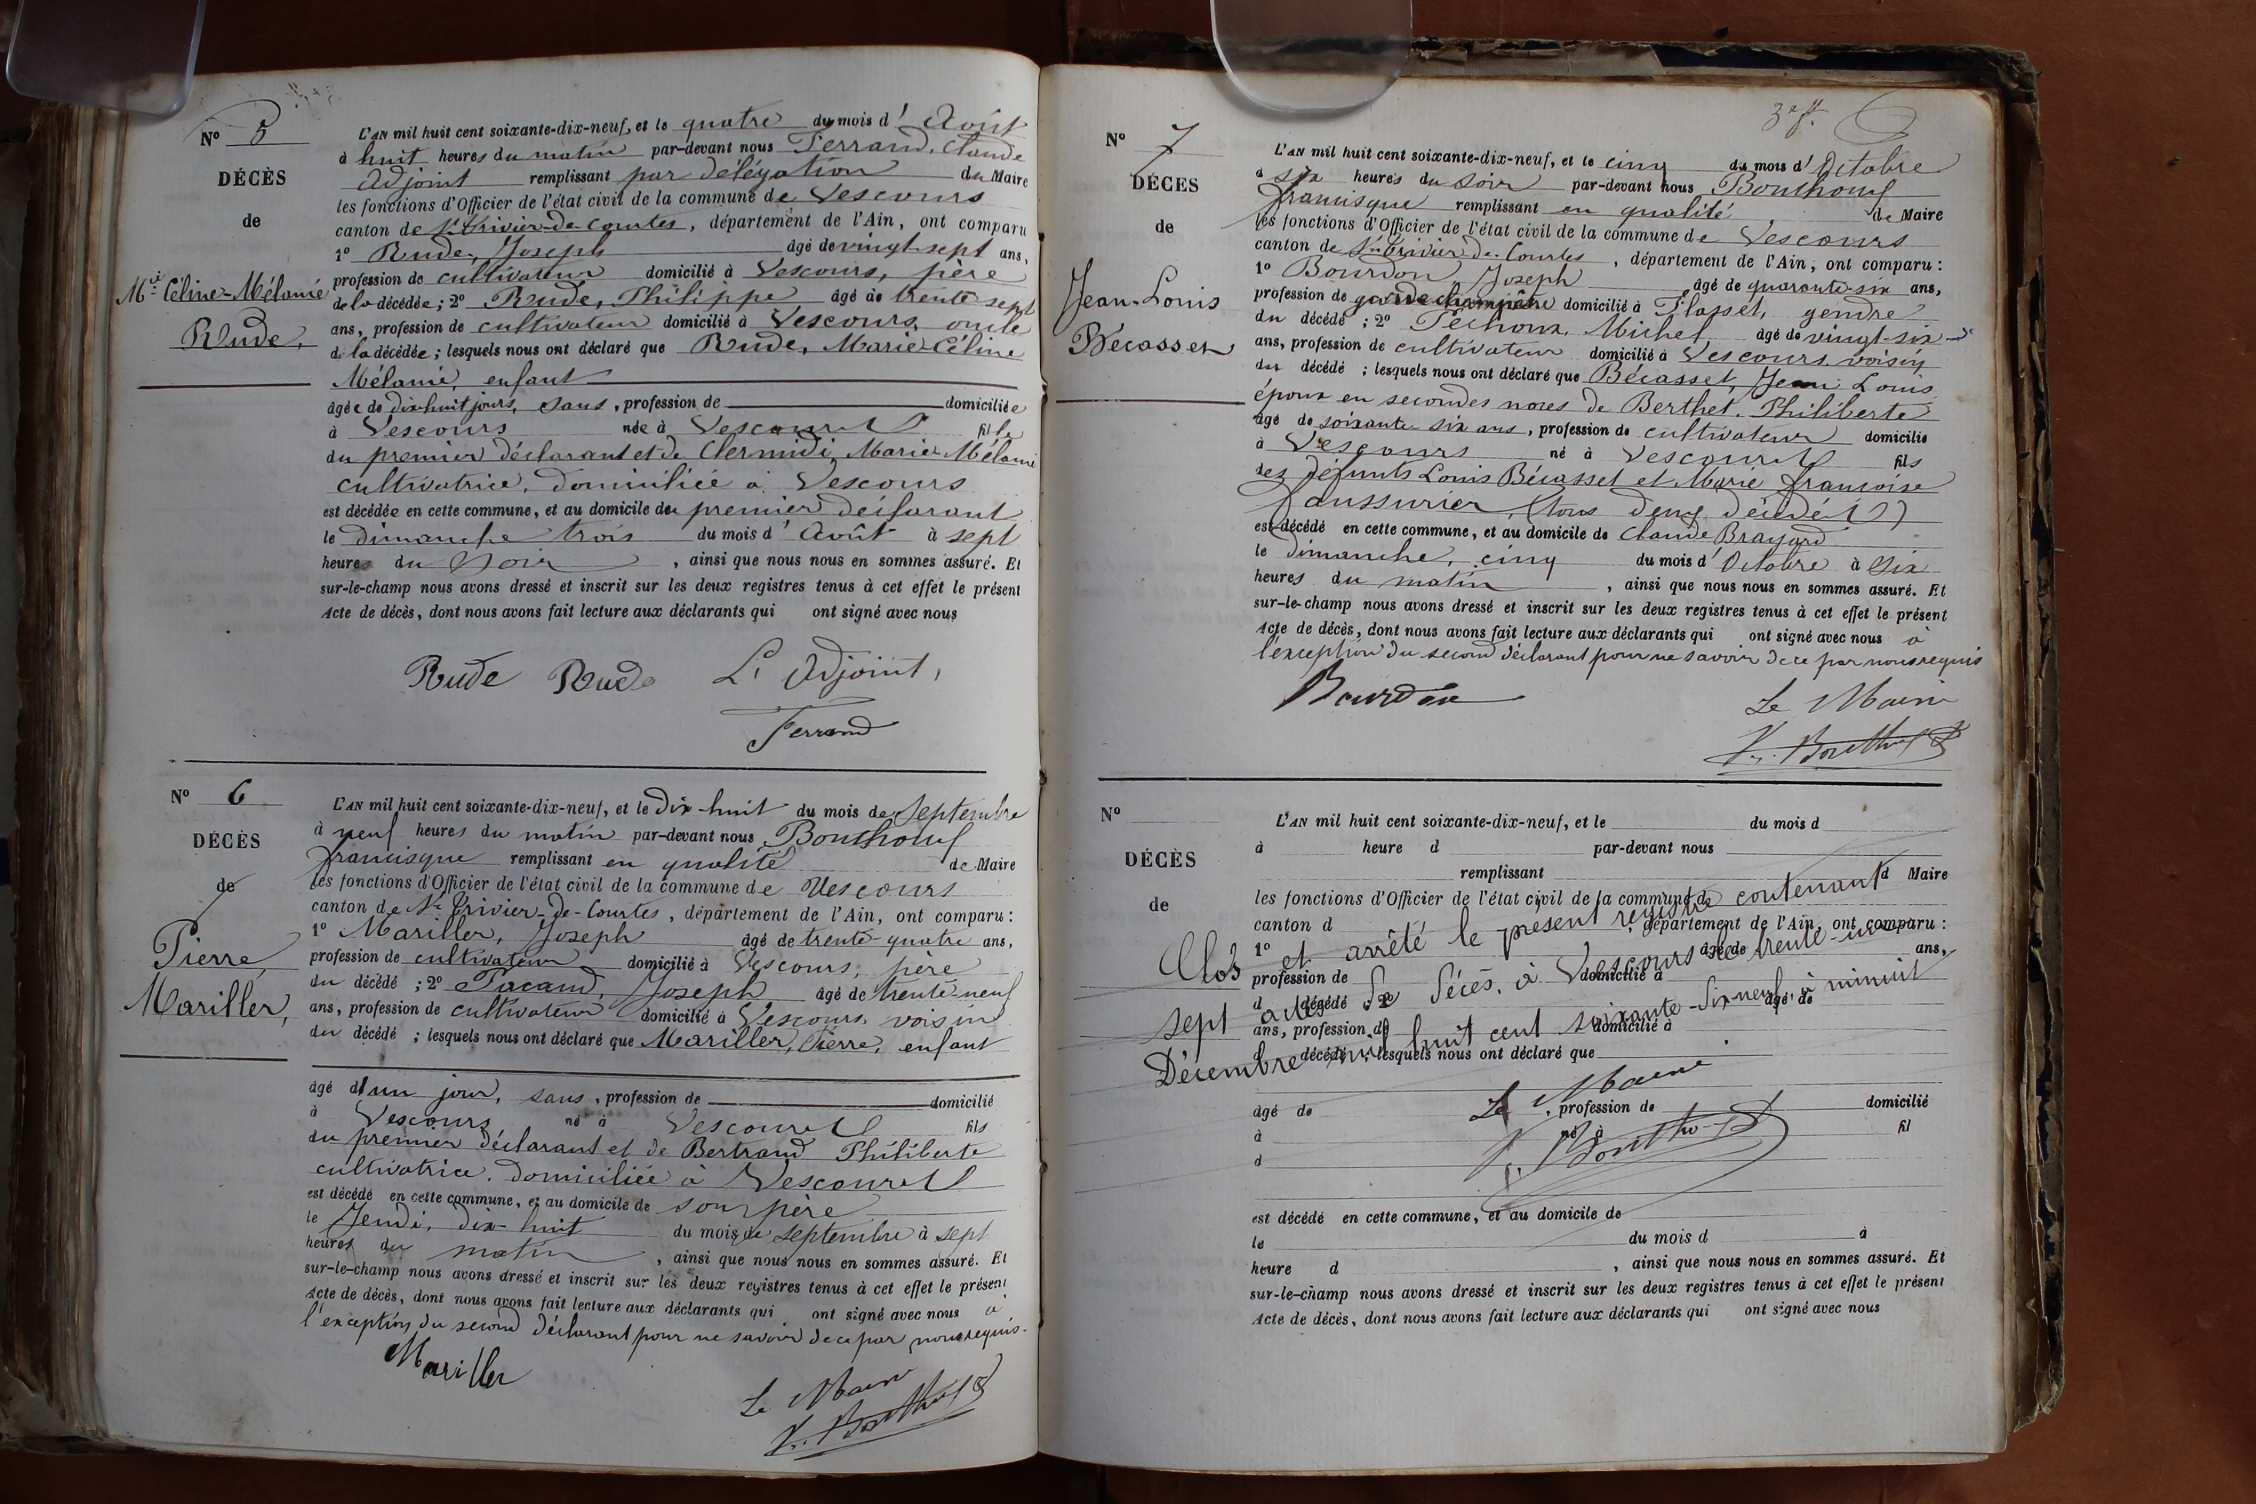 Nº 5
DÉCÈS
de
Mie Céline-Mélanie
Rude,
L'AN mil huit cent soixante-dix-neuf, et le quatre du mois d'Août
à huit heures du matin par-devant nous Ferrand, Claude
Adjoint remplissant par délégation du Maire
les fonctions d'Officier de l'état civil de la commune de Vescours
canton de St Trivier-de-Courtes, département de l'Ain, ont comparu
1º Rude, Joseph âgé de vingt-sept ans,
profession de cultivateur domicilié à Vescours, père
de la décédée; 2º Rude, Philippe âgé de trente sept
ans, profession de cultivateur domicilié à Vescours, oncle
de la décédée; lesquels nous ont déclaré que Rude, Marie Céline
Mélanie, enfant
âgée de dix-huit jours, sans, profession de domiciliée
à Vescours née à Vescours fille
du premier déclarant et de Clermidi, Marie Mélanie
cultivatrice, domiciliée à Vescours
est décédée en cette commune, et au domicile du premier déclarant
le dimanche trois du mois d'Août à sept
heures du soir, ainsi que nous nous en sommes assuré. Et
sur-le-champ nous avons dressé et inscrit sur les deux registres tenus à cet effet le présent
Acte de décès, dont nous avons fait lecture aux déclarants qui ont signé avec nous
Rude Rude L'Adjoint,
Ferrand
Nº 6
DÉCÈS
de
Pierre
Mariller,
L'AN mil huit cent soixante-dix-neuf, et le dix-huit du mois de Septembre
à neuf heures du matin par-devant nous Bouthouf
francisque remplissant en qualité de Maire
les fonctions d'Officier de l'état civil de la commune de Vescours
canton de St Trivier-de-Courtes, département de l'Ain, ont comparu:
1º Mariller, Joseph âgé de trente-quatre ans,
profession de cultivateur domicilié à Vescours, père
du décédé; 2º Pacaud, Joseph âgé de trente-neuf
ans, profession de cultivateur domicilié à Vescours, voisin
du décédé; lesquels nous ont déclaré que Mariller, Pierre, enfant
âgé d'un jour, sans, profession de domicilié
à Vescours né à Vescours fils
du premier déclarant et de Bertrand Philiberte
cultivatrice, domiciliée à Vescours
est décédé en cette commune, et au domicile de son père
le Jeudi, dix-huit du mois de septembre à sept
heures du matin, ainsi que nous nous en sommes assuré. Et
sur-le-champ nous avons dressé et inscrit sur les deux registres tenus à cet effet le présent
Acte de décès, dont nous avons fait lecture aux déclarants qui ont signé avec nous à
l'exception du second déclarant pour ne savoir de ce par nous requis.
Mariller
Le Maire
F. Bouthouf
3e f.
Nº 7
DÉCÈS
de
Jean-Louis
Bécasset
L'AN mil huit cent soixante-dix-neuf, et le cinq du mois d'Octobre
à six heures du soir par-devant nous Bouthouf
francisque remplissant en qualité de Maire
les fonctions d'Officier de l'état civil de la commune de Vescours
canton de St Trivier-de-Courtes, département de l'Ain, ont comparu:
1º Bourdon Joseph âgé de quarante-six ans,
profession de garde champêtre domicilié à Flasset, gendre
du décédé; 2º Téchoux, Michel âgé de vingt-six
ans, profession de cultivateur domicilié à Vescours voisin
du décédé; lesquels nous ont déclaré que Bécasset, Jean Louis
époux en secondes noces de Berthet. Philiberte
âgé de soixante six ans, profession de cultivateur domicilié
à Vescours né à Vescours fils
des défunts Louis Bécasset et Marie françoise
Paussurier, (tous deux décédés)
est décédé en cette commune, et au domicile de Claude Brayard
le dimanche, cinq du mois d'Octobre à six
heures du matin, ainsi que nous nous en sommes assuré. Et
sur-le-champ nous avons dressé et inscrit sur les deux registres tenus à cet effet le présent
Acte de décès, dont nous avons fait lecture aux déclarants qui ont signé avec nous à
l'exception du second déclarant pour ne savoir de ce par nous requis
Bourdon
Le Maire
F. Bouthouf
Nº
DÉCÈS
de
L'AN mil huit cent soixante-dix-neuf, et le du mois d
à heure d par-devant nous
remplissant d Maire
les fonctions d'Officier de l'état civil de la commune de
canton d , département de l'Ain, ont comparu:
1º âgé de ans,
profession de domicilié à
d décédé 2º âgé de
ans, profession de domicilié à
d décédé; lesquels nous ont déclaré que
Clos et arrêté le présent registre contenant
sept actes de décès, à Vescours le trente-un
Décembre mil huit cent soixante-dix-neuf à minuit
Le Maire
F. Bouthouf
âgé de , profession de domicilié
à né à fil
d
est décédé en cette commune, et au domicile de
le du mois d à
heure d , ainsi que nous nous en sommes assuré. Et
sur-le-champ nous avons dressé et inscrit sur les deux registres tenus à cet effet le présent
Acte de décès, dont nous avons fait lecture aux déclarants qui ont signé avec nous